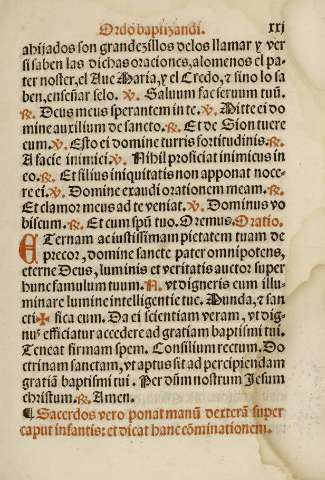 Ordo baptizandi. xxj
ahijados son grandezillos delos llamar y ver
si saben las dichas oraciones, alomenos el pa-
ter noster, el Aue Maria, y el Credo, & sino lo sa
ben, enseñar selo. ℣. Saluum fac seruum tuū.
℟. Deus meus sperantem in te. ℣. Mitte ei do
mine auxilium de sancto. ℟. Et de Sion tuere
eum. ℣. Esto ei domine turris fortitudinis. ℟.
A facie inimici ℣. Nihil proficiat inimicus in
eo. ℟. Et filius iniquitatis non apponat noce-
re ei. ℣. Domine exaudi orationem meam. ℟.
Et clamor meus ad te veniat. ℣. Dominus vo
biscum. ℟. Et cum spū tuo. Oremus. Oratio.
ETernam ac iustissimam pietatem tuam de
precor, domine sancte pater omnipotens,
eterne Deus, luminis et veritatis auctor super
hunc famulum tuum. N. vt digneris eum illu-
minare lumine intelligentie tue. Munda, & san
cti ✠ fica eum. Da ei scientiam veram, vt dig-
nus efficiatur accedere ad gratiam baptismi tui.
Teneat firmam spem. Consilium rectum. Do
ctrinam sanctam, vt aptus sit ad percipiendam
gratiā baptismi tui. Per dūm nostrum Jesum
christum. ℟. Amen.
¶ Sacerdos vero ponat manū dexterā super
caput infantis: et dicat hanc cōminationem.